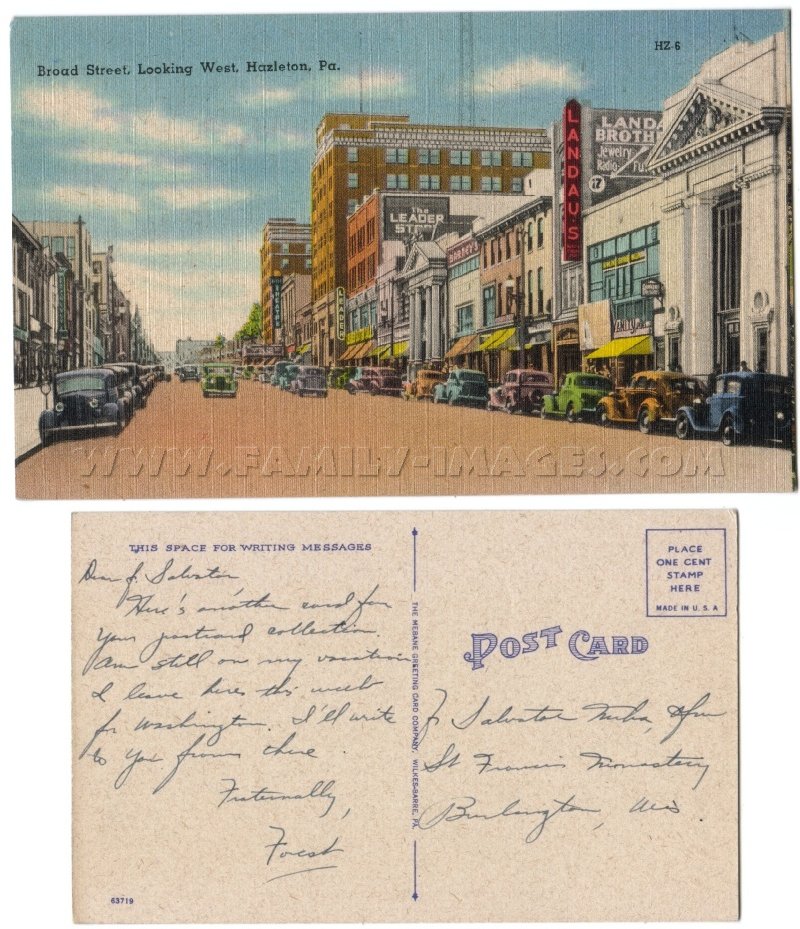 Broad Street, Looking West, Hazleton, Pa.
HZ-6
LANDAU'S
LANDAU
BROTHERS
Jewelry
Radio
17
The
LEADER
STORE
LEADER
WWW.FAMILY-IMAGES.COM
THIS SPACE FOR WRITING MESSAGES
Dear f. Salvator,
Here's another card for
your postcard collection.
Am still on my vacation
I leave here this week
for Washington. I'll write
to you from there.
Fraternally,
Forest
63719
THE MEBANE GREETING CARD COMPANY, WILKES-BARRE, PA.
PLACE
ONE CENT
STAMP
HERE
MADE IN U.S.A
POST CARD
Fr Salvator
St Francis Monastery
Burlington, Wis